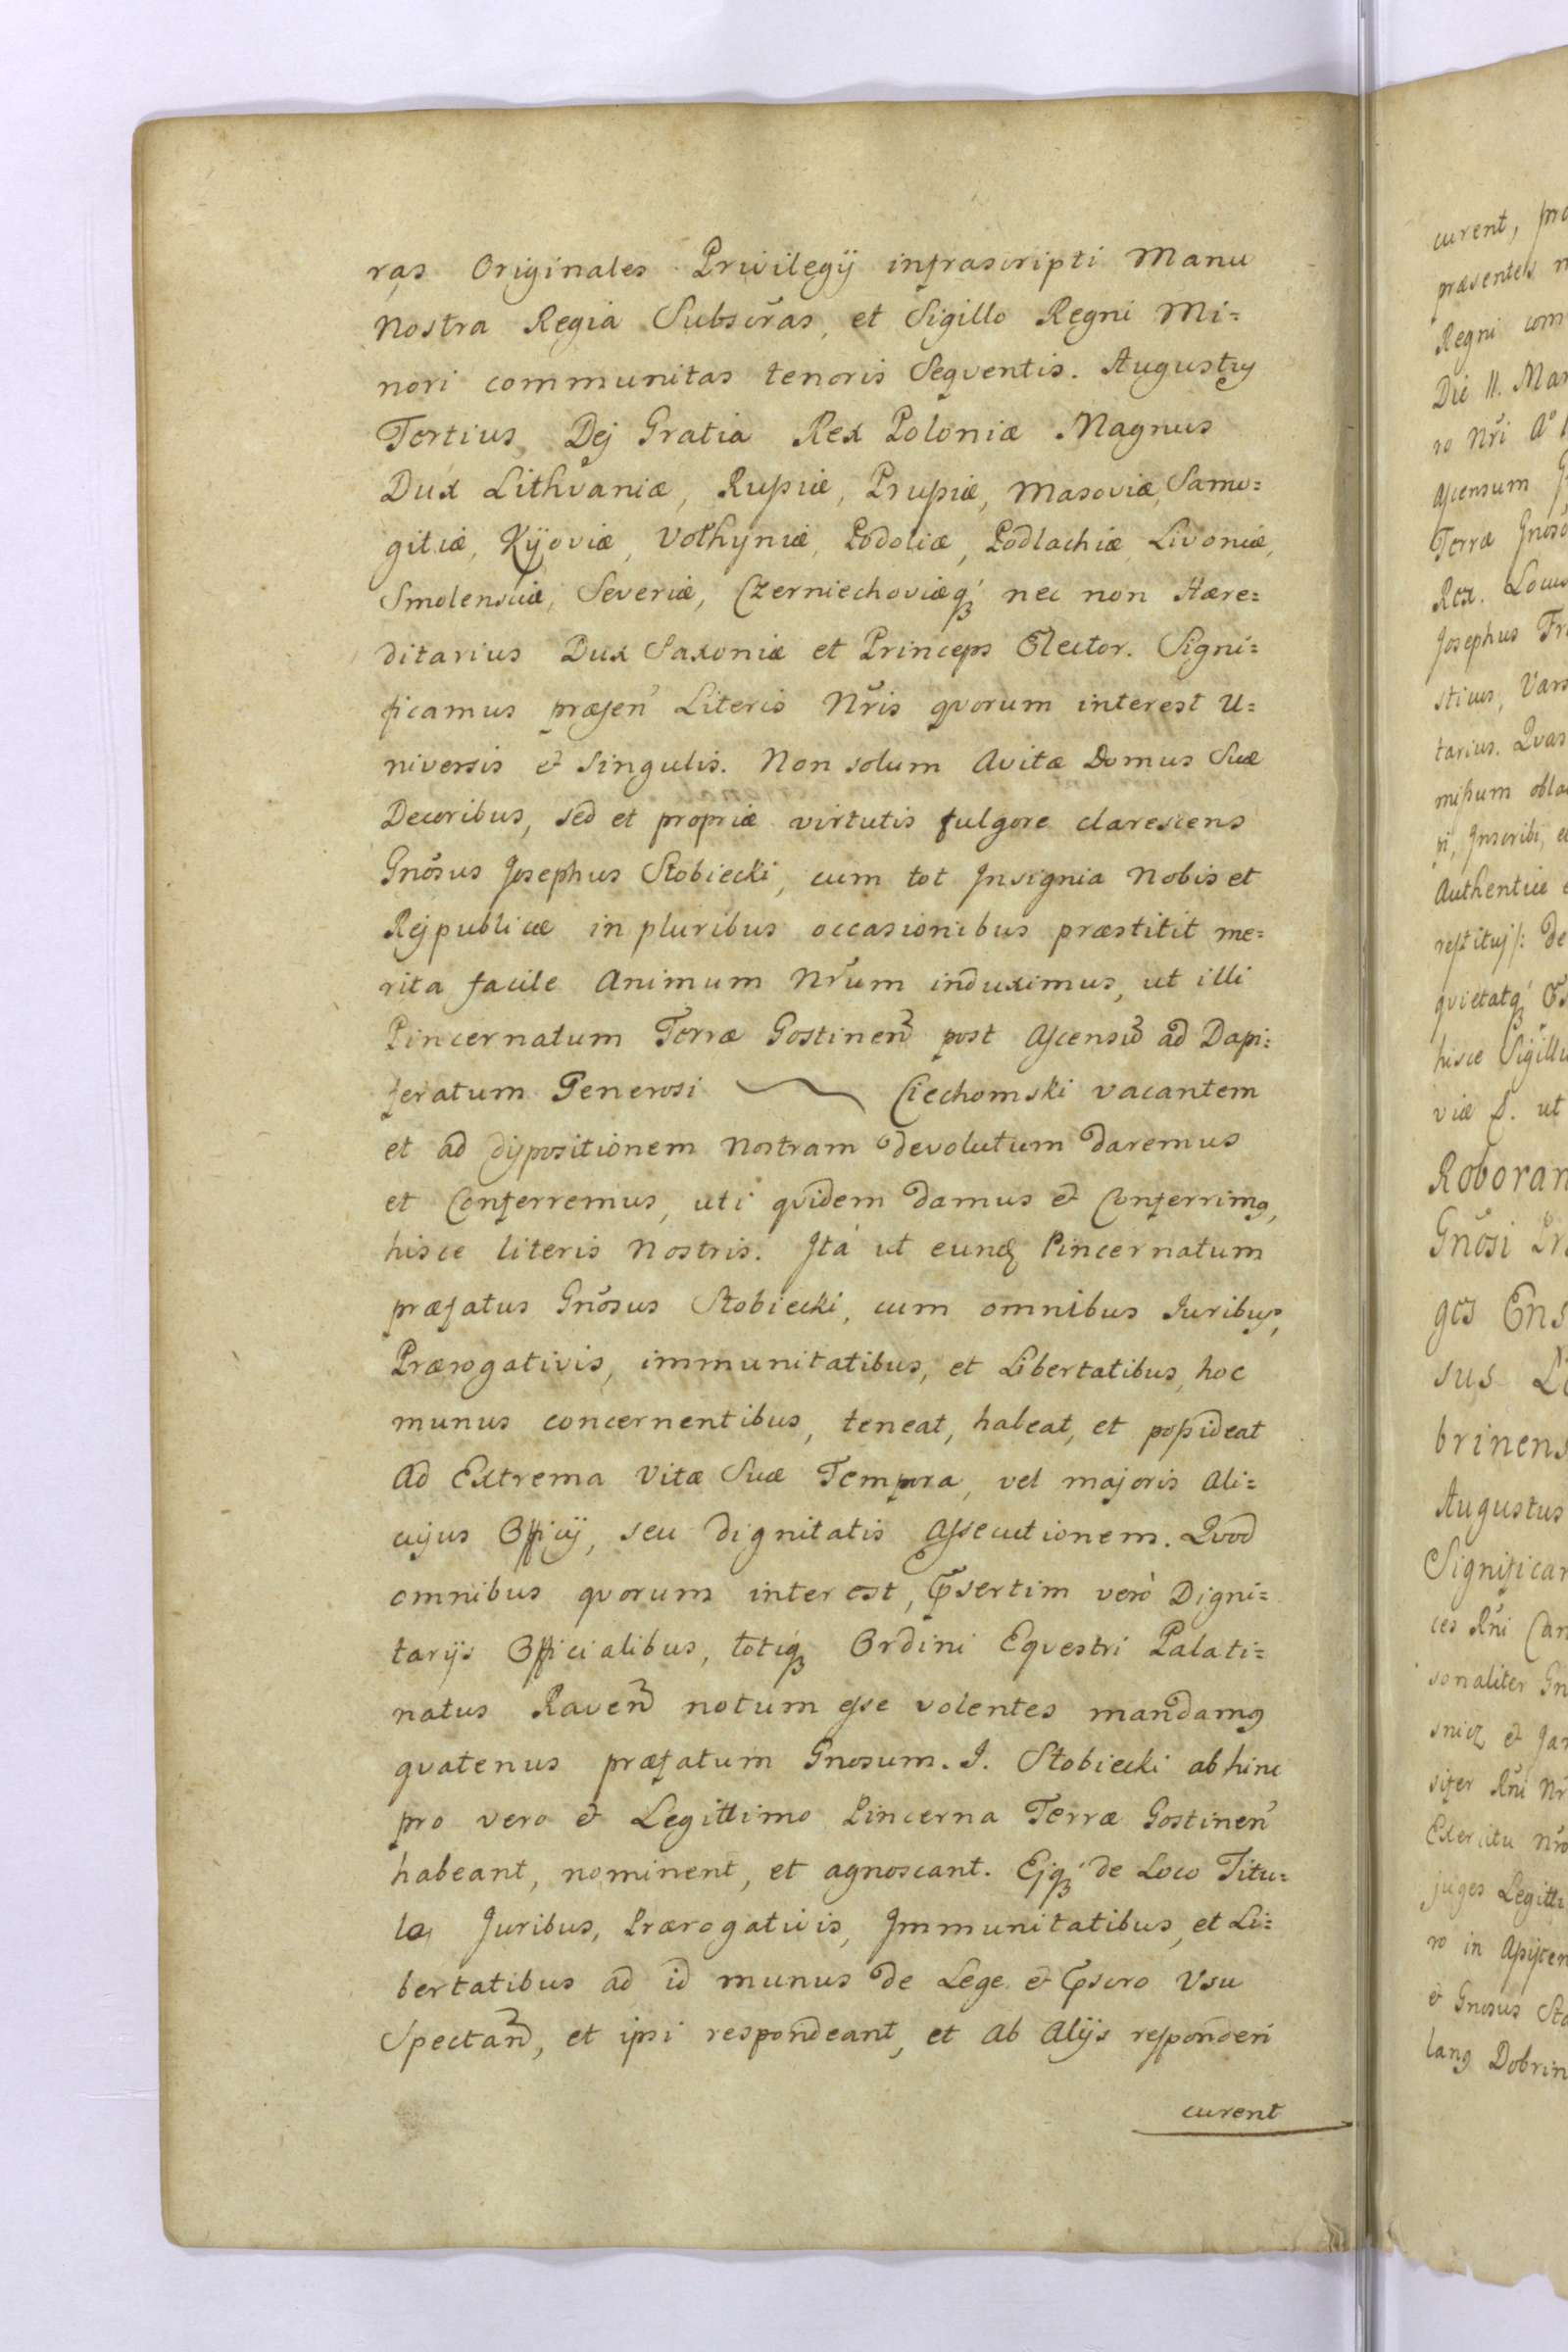 ras Originales Privilegij infrascripti Manu
Nostra Regia Subscr̃as, et Sigillo Regni Mi=
nori communitas tenoris Seqventis. Augustus
Tertius, Dej Gratia Rex Poloniæ Magnus
Dux Lithvaniæ, Russiæ, Prussiæ, Masoviæ, Samo=
gitiæ, Kijoviæ, Volhyniæ, Podoliæ, Podlachiæ Livoniæ,
Smolensciæ, Severiæ, Czerniechoviæq́ꝫ nec non Hære=
ditarius Dux Saxoniæ et Princeps Elector. Signi=
ficamus præsen̛ Literis Nr̃is qvorum interest U=
niversis & Singulis. Non solum Avitæ Domus Suæ
Decoribus, sed et propriæ virtutis fulgore clarescens
Gnõsus Josephus Stobiecki, cum tot Insignia Nobis et
Rejpublicæ in pluribus occasionibus præstitit me=
rita facile Animum Nr̃um induximus, ut illi
Pincernatum Terræ Gostinen̛ post Ascensũ ad Dapi=
feratum Generosi ~ Ciechomski vacantem
et ad dispositionem Nostram devolutum daremus
et Conferremus, uti qvidem damus & Conferrimꝰ,
hisce literis Nostris. Ità ut eundꝫ Pincernatum
præfatus Gnõsus Stobiecki, cum omnibus Juribus,
Prærogativis, immunitatibus, et Libertatibus, hoc
munus concernentibus, teneat, habeat, et possideat
Ad Extrema Vitæ Suæ Tempora, vel majoris Ali=
cujus Officij, seu dignitatis Assecutionem. Qvod
omnibus qvorum interest, Ꝓsertim verò Digni=
tarijs Officialibus, totiq́ꝫ Ordini Eqvestri Palati=
natus Raven̛ notum esse volentes mandamꝰ
qvatenus præfatum Gnosum. J. Stobiecki abhinc
pro vero & Legittimo Pincerna Terræ Gostinen̛
habeant, nominent, et agnoscant. Ejq́ꝫ de Loco Titu=
lo, Juribus, Prærogativis, Immunitatibus, et Li=
bertatibus ad id munus de Lege & Ꝓscro Usu
Spectan̛, et ipsi respondeant, et ab Alijs responderi
curent
curent,
præsentes
Regni com
Die 11. Mar
ro Nr̃i Aº
Ascensum
Terræ Gnõso
Rex. Locus
Josephus Fr
stius, Vars
tarius. Qvas
missum obla
si, Inscribi, e
Authentice
restituj/: de
qvietatq́ꝫ
hisce Sigillu
viæ S. ut
Roboran
Gnõsi Pr
gcs Ens
sus
brinens
Augustus
Significam
ces Rñi Can
sonaliter Gn
snicz & Jan
siter Rñi Nr
Exercitu Nrõ
juges Legitti
ro in Assisten
& Gnosus Sto
lanꝰ Dobrin